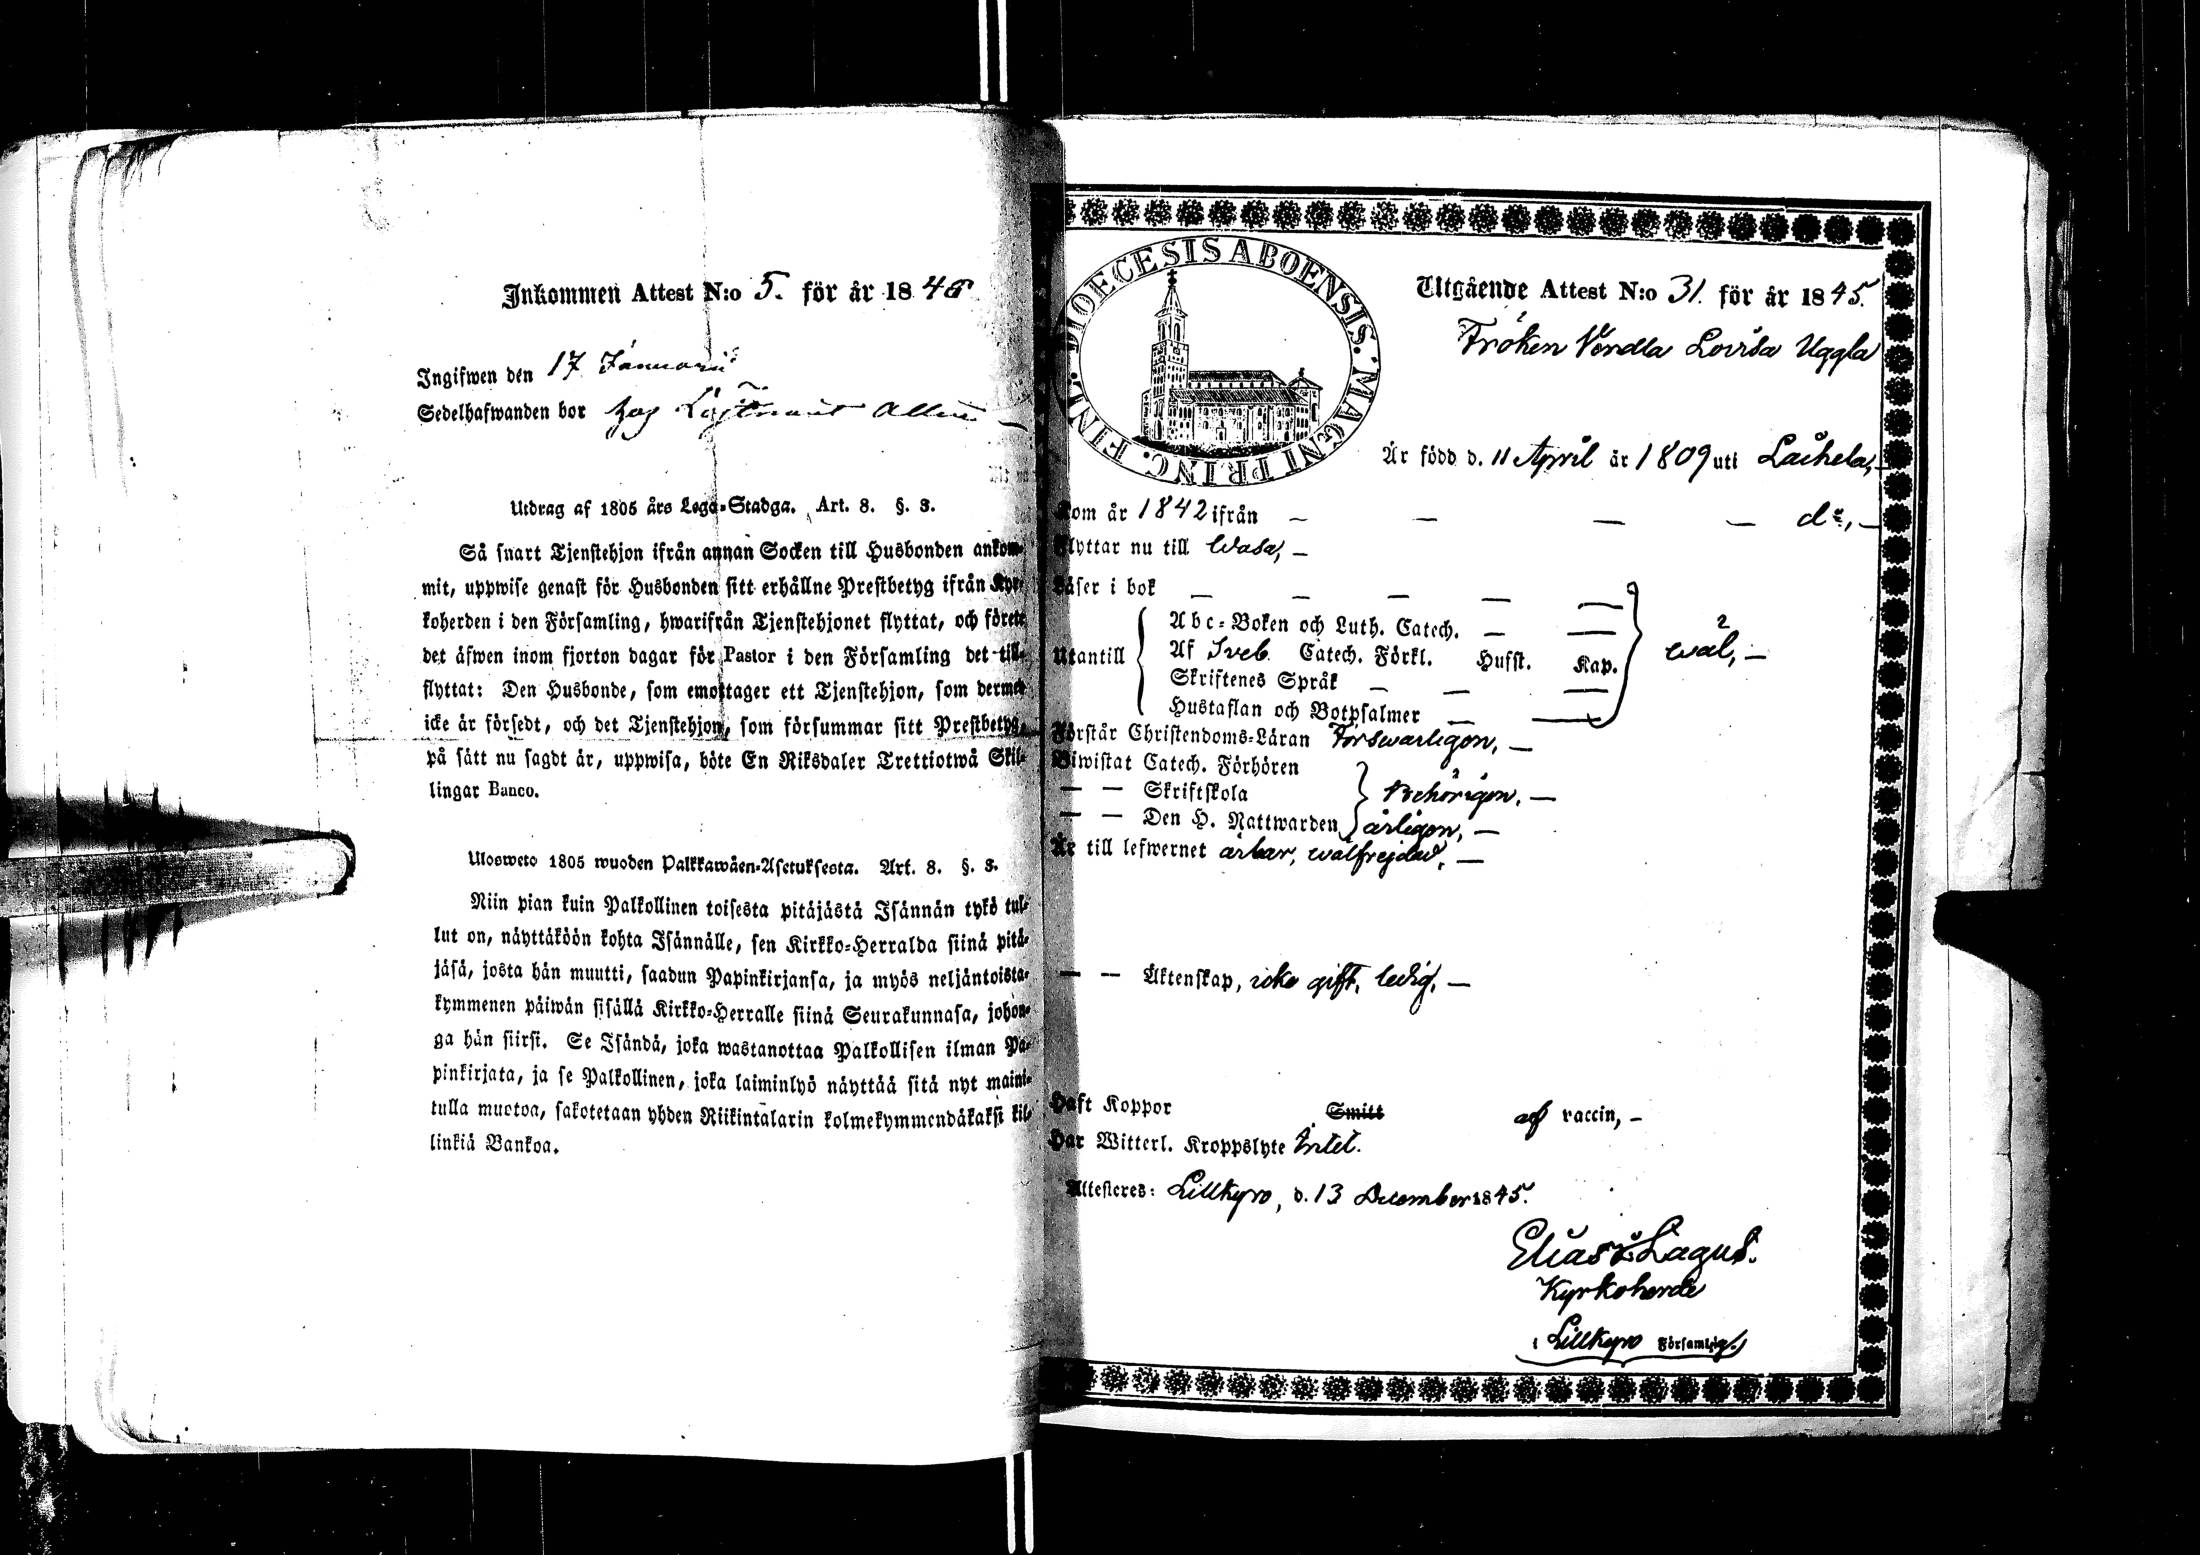 Inkommen Attest N:o 5. för år 1846
Ingifwen den 17 Januarii
Sedelhafwanden bor hos Löjtnant
Utdrag af 1805 års Lego-Stadga. Art. 8. §. 3.
Så snart Tjenstehjon ifrån annan Socken till Husbonden ankom-
mit, uppwise genast för Husbonden sitt erhållne Prestbetyg ifrån Kyr-
koherden i den Församling, hwarifrån Tjenstehjonet flyttat, och förete
det äfwen inom fjorton dagar för Pastor i den Församling det till-
flyttat: Den Husbonde, som emottager ett Tjenstehjon, som dermed
icke är försedt, och det Tjenstehjon, som försummar sitt Prestbetyg,
på sätt nu sagdt är, uppwisa, böte En Riksdaler Trettiotwå Skil-
lingar Banco.
Uloswето 1805 wuoden Palkkawäen-Asetuksesta. Art. 8. §. 3.
Niin pian kuin Palkollinen toisesta pitäjästä Isännän tykö tul-
lut on, näyttäköön kohta Isännälle, sen Kirkko-Herralda siinä pitä-
jäsä, josta hän muutti, saadun Papinkirjansa, ja myös neljäntoista-
kymmenen päiwän sisällä Kirkko-Herralle siinä Seurakunnasa, johon-
ga hän siirsi. Se Isändä, joka wastanottaa Palkollisen ilman Pa-
pinkirjata, ja se Palkollinen, joka laiminlyö näyttää sitä nyt maini-
tulla muotoa, sakotetaan yhden Riikintalarin kolmekymmendäkaksi kil-
linkiä Bankoa.
DIOECESIS ABOENSIS. MAGNI PRINC. FINL.
Utgående Attest N:o 31. för år 1845.
Fröken Vendla Lovisa Uggla
Är född d. 11 April år 1809 uti Laihela, —
Kom år 1842 ifrån — — — — d:o, —
Flyttar nu till Wasa, —
Läser i bok — — — — —
Utantill
Abc-Boken och Luth. Catech. — —
Af Sveb. Catech. Förkl. Husst. Kap.
Skriftenes Språk — — —
Hustaflan och Botpsalmer — —
wäl, —
Förstår Christendoms-Läran Förswarligen, —
Biwistat Catech. Förhören
— — Skriftskola
Behörigen, —
— — Den H. Nattwarden årligen, —
Är till lefwernet ärbar, wälfrejdad, —
— — Äktenskap, icke gift, ledig, —
Haft Koppor Smitt af vaccin, —
Har Witterl. Kroppslyte Intet.
Attesteres: Lillkyro, d. 13 December 1845.
Elias Lagus.
Kyrkoherde
i Lillkyro Församling.